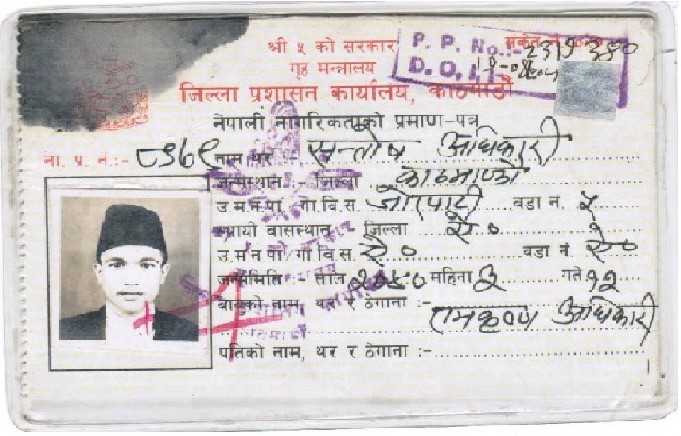 श्री ५ को सरकार
गृह मन्त्रालय
जिल्ला प्रशासन कार्यालय, काठमाडौं
P. P. No.:- 2319350
D.O.I.:-
नेपाली नागरिकताको प्रमाण-पत्र
ना. प्र. नं.:- ८९६९ नाम थर :- सन्तोष अधिकारी
जन्मस्थान :- जिल्ला काठमाण्डौ
उ.म.न.पा./गा.वि.स. जोरपाटी वडा नं. ५
स्थायी वासस्थान जिल्ला ऐ०
उ.म.न.पा/गा.वि.स. ऐ० वडा नं. ऐ०
जन्ममिति - साल २०४० महिना ३ गते १२
बाबुको नाम, थर र ठेगाना :-
रामकृष्ण अधिकारी
पतिको नाम, थर र ठेगाना :-